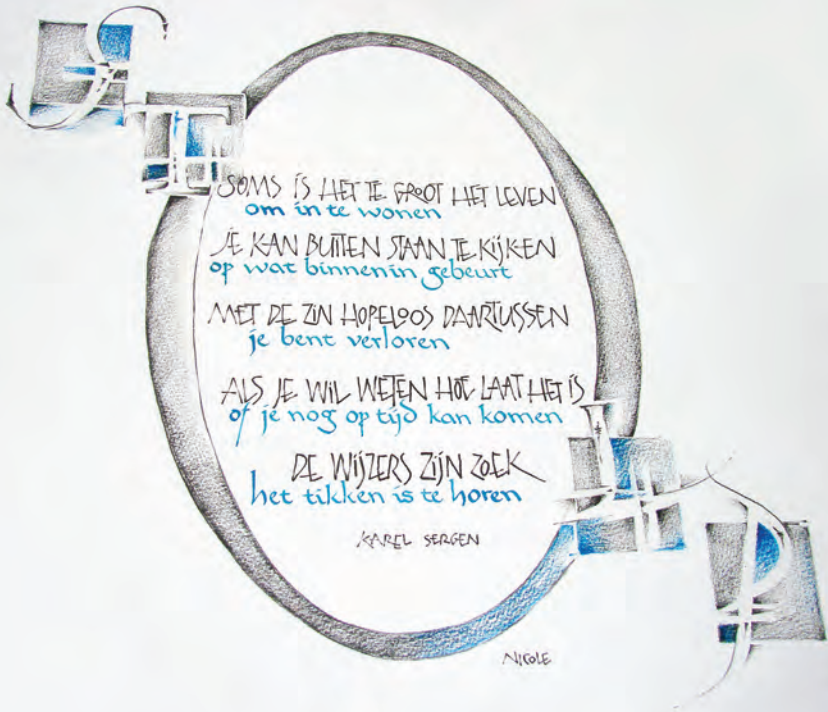 SOMS IS HET TE GROOT HET LEVEN
om in te wonen
JE KAN BUITEN STAAN TE KIJKEN
op wat binnenin gebeurt
MET DE ZIN HOPELOOS DAARTUSSEN
je bent verloren
ALS JE WIL WETEN HOE LAAT HET IS
of je nog op tijd kan komen
DE WIJZERS ZIJN ZOEK
het tikken is te horen
KAREL SERGEN
NICOLE